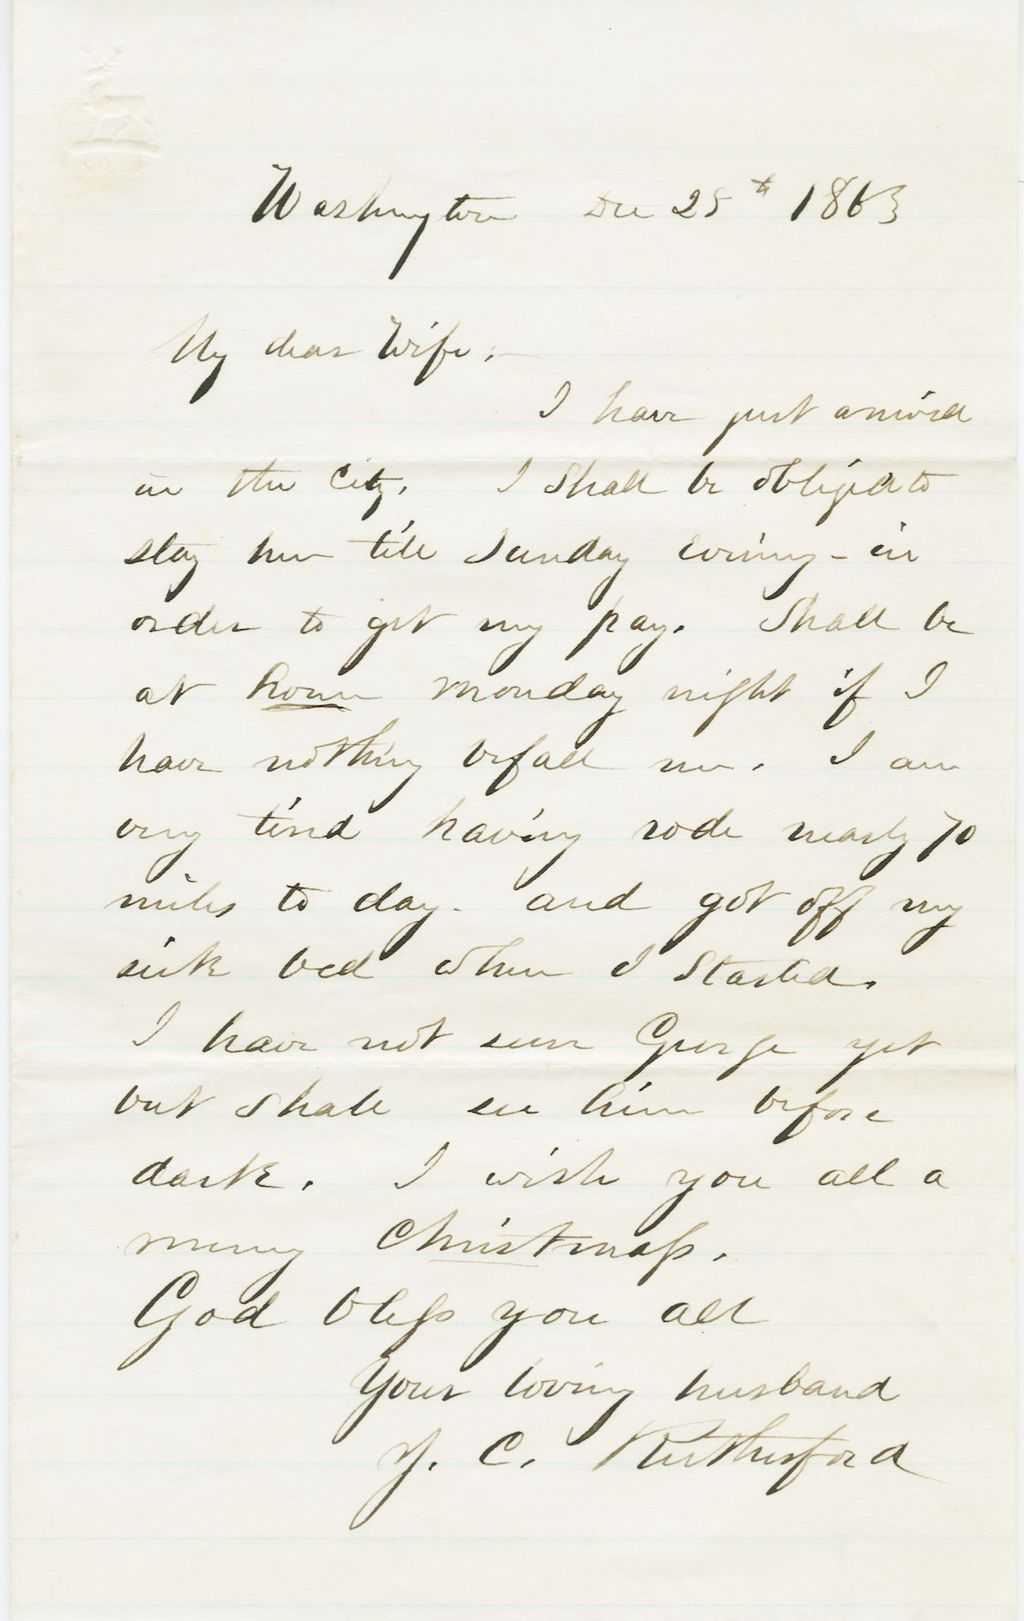 Washington Dec 25th 1863
My dear Wife.
I have just arrived
in the City. I shall be obliged to
stay here till Sunday evening - in
order to get my pay. Shall be
at home Monday night if I
have nothing befall me. I am
very tired having rode nearly 70
miles to day. and got off my
sick bed when I started.
I have not seen George yet
but shall see him before
dark. I wish you all a
merry Christmass.
God bless you all
Your loving husband
J. C. Rutherford